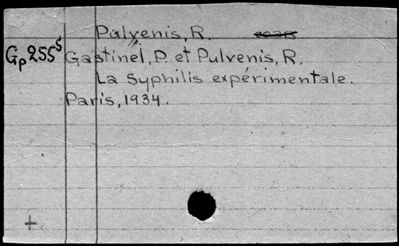 Pulvenis, R.
Gp255⁵ Gastinel, P. et Pulvenis, R.
La Syphilis expérimentale.
Paris, 1934.
+